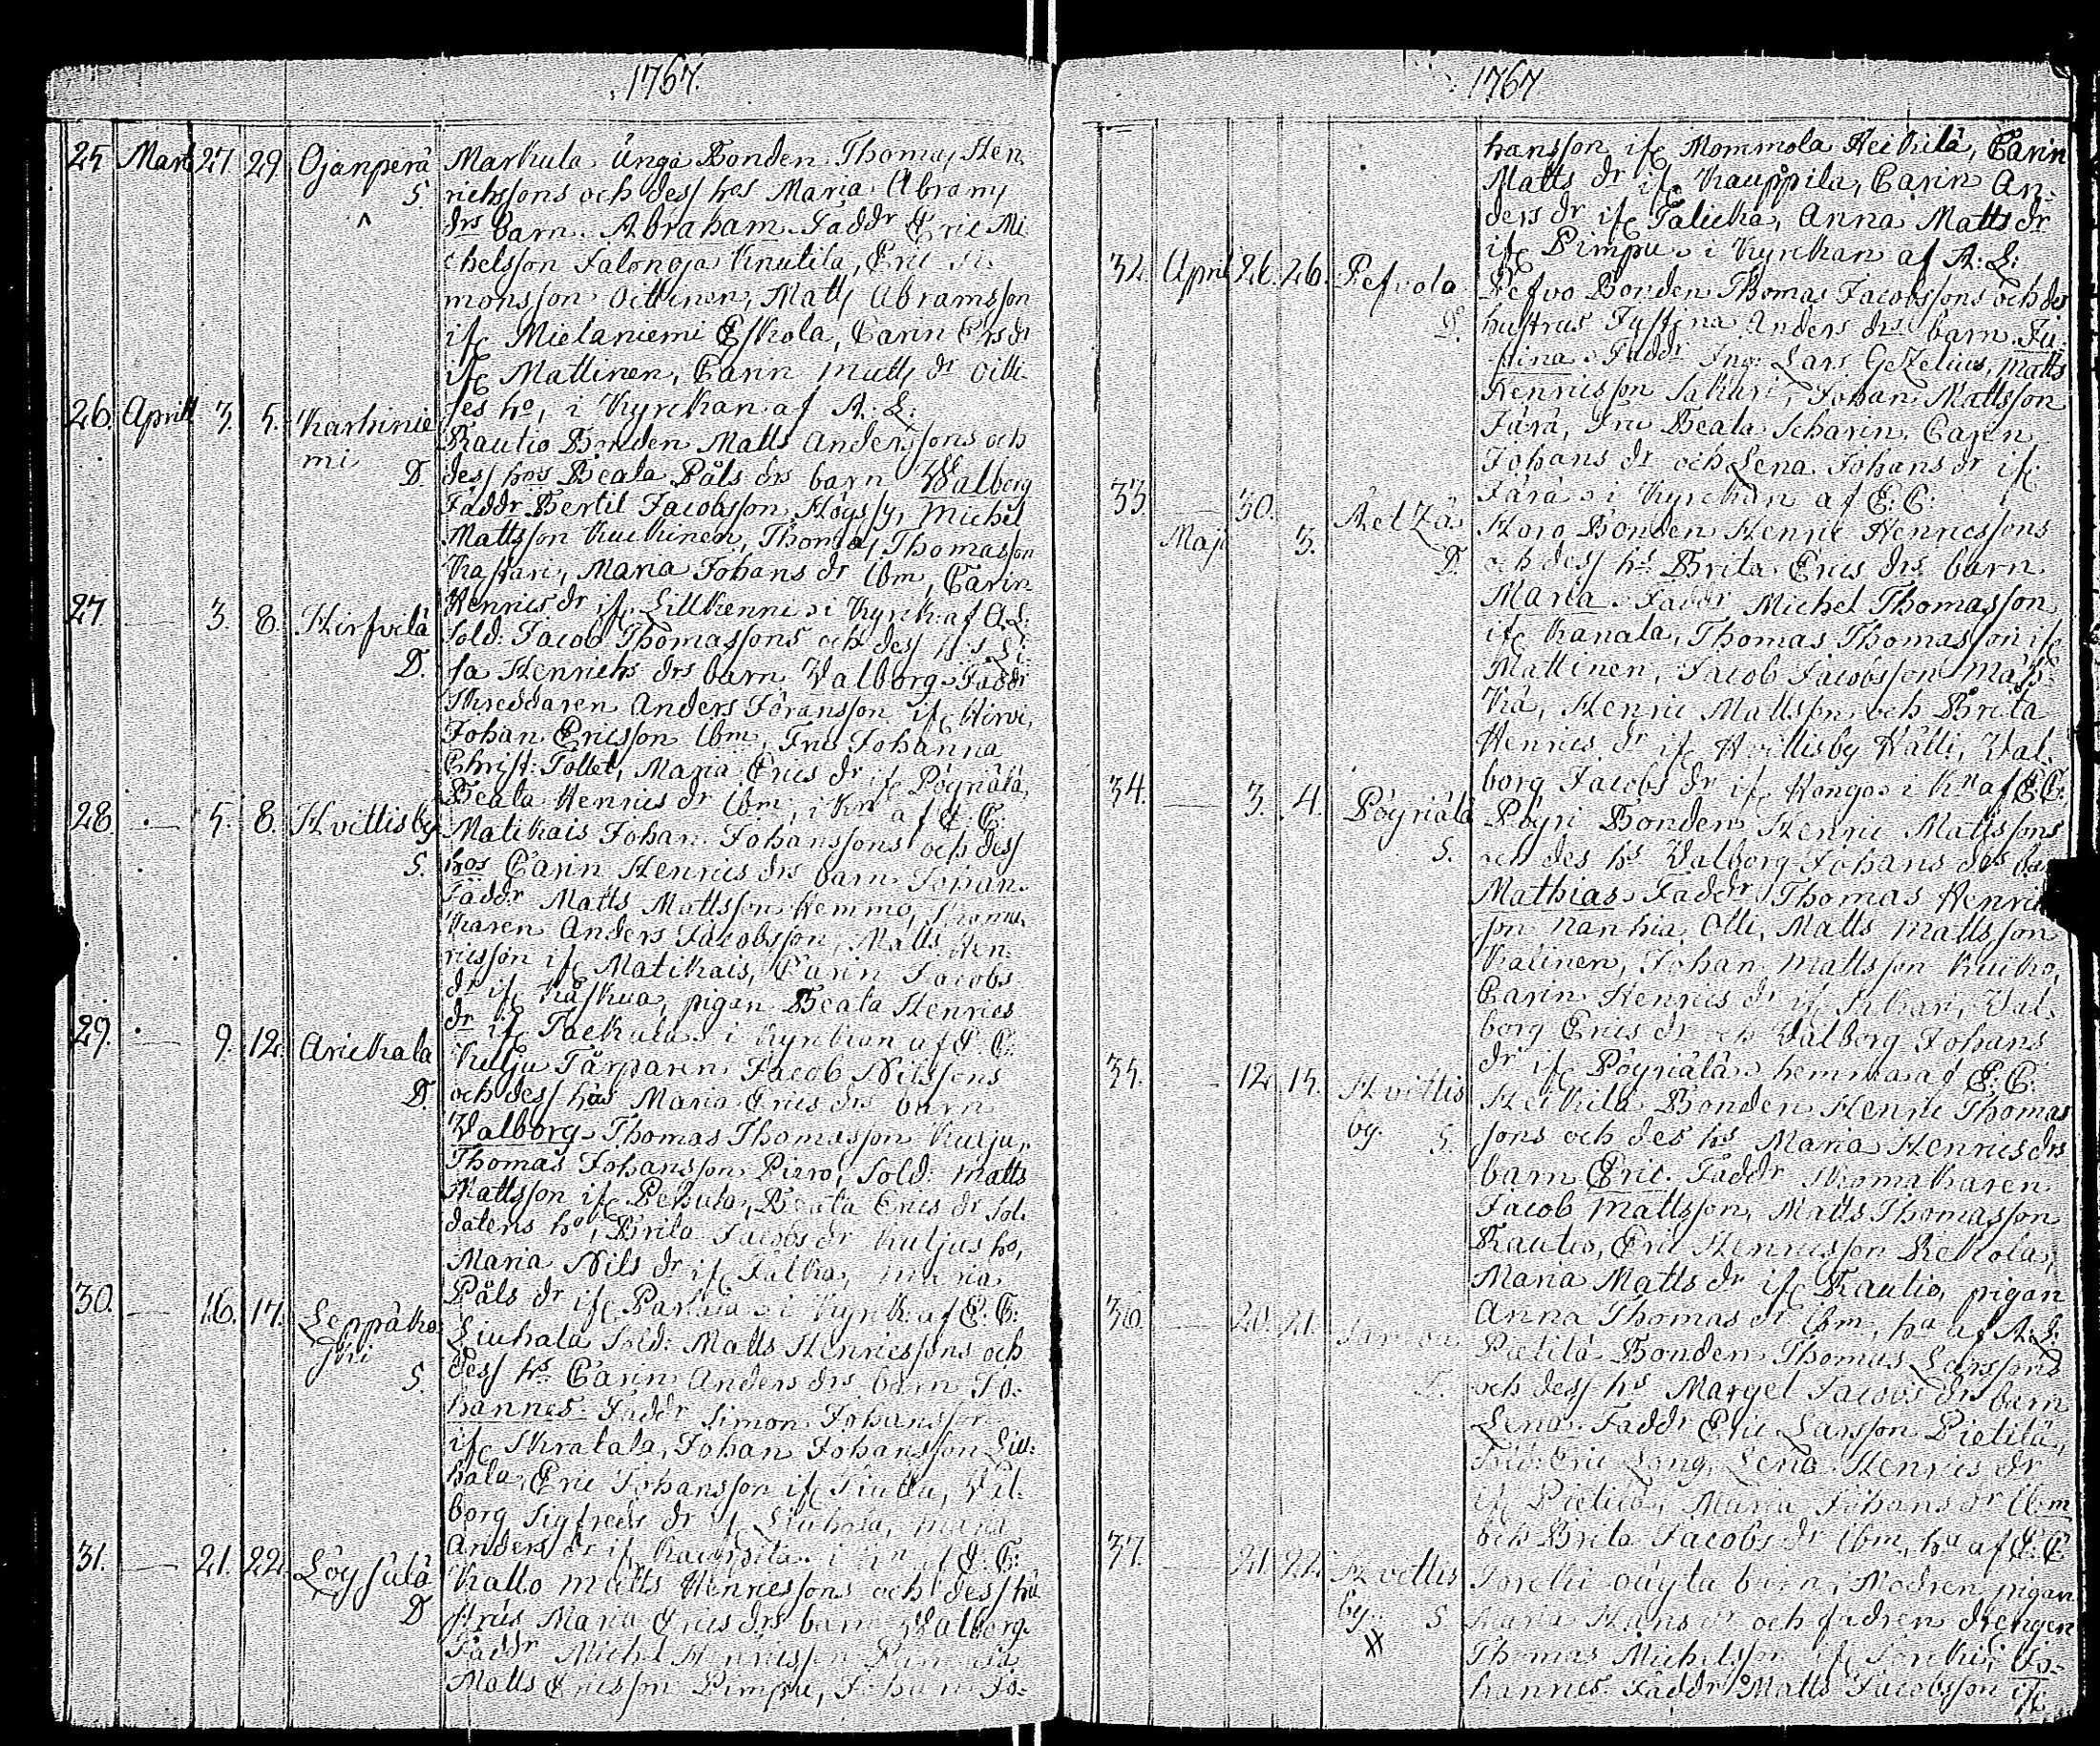 1767.
25. Mart 27. 29. Ojanperä Markula Unga Bonden Thomas Hen
S. richssons och dess hos Maria Abrams
drs barn Abraham Faddr Eric Mi
chelsson Jalonoja Knutila, Eric Si
monsson Oittinen, Matts Abramsson
ifr Mielaniemi Eskola, Carin Ersdr
ifr Mattinen, Carin Matts dr Oitti
26. April 3. 5. Karhinie ses ho, i Kyrckan af A: L:
mi Rautio Bonden Matts Anderssons och
D. dess hos Beata Påls drs barn Walborg
Faddr Bertil Jacobsson Höyssy, Michel
Mattsson Kuckinen, Thomas Thomasson
Kassari, Maria Johans dr ibm, Carin
27. 3. 8. Hirfvilä Henrics dr ifr Lillkenni i Kyrck: af A.L:
Sold: Jacob Thomassons och dess h:s Li
D. sa Henrichs drs barn Valborg Faddr
Skreddaren Anders Jöransson ifr Hirvi,
Johan Ericsson ibm, Fru Johanna
Christ: Tollet, Maria Erics dr ifr Pöyriälä,
28. 5. 8. Hvittisby Beata Henrics dr ibm, i Kn af E. C:
Matikais Johan Johanssons och dess
S. hos Carin Henrics drs barn Johan
Faddr Matts Mattsson Hemmo, Skoma
karen Anders Jacobsson, Matts Hen
ricsson ifr Matikais, Carin Jacobs
dr ifr Kåskua, pigan Beata Henrics
29. 9. 12. Arickala dr ifr Tackula i Kyrckan af E. C:
Kulju Tårparen Jacob Nilssons
D. och dess hos Maria Erics drs barn
Valborg Thomas Thomasson Kulju,
Thomas Johansson Piero, Sold: Matts
Mattsson ifr Pekula, Beata Erics dr Sol
datens ho, Brita Jacobs dr Kuljus ho,
Maria Nils dr ifr Jalka, Maria
30. 16. 17. Leppäko Påls dr ifr i Kyrck: af E: C:
ski Liuhala Sold: Matts Henricssons och
S. dess hs Carin Anders drs barn Jo
hannes Faddr Simon Johansson
ifr Skratala, Johan Johansson Liu
hala, Eric Johansson ifr Val
borg Sigfreds dr ifr Liuhala, Maria
31. 21. 22. Löysälä Anders dr ifr Kauppila i Kn af E: C:
Kallo Matts Henricssons och dess hu
D strus Maria Erics drs barn Walborg
Faddr Michel Henricsson
Matts Ericsson Pimpu, Johan Jo:
1767
hansson ifr Mommola Heikkilä, Carin
Matts dr ifr Kauppila, Carin An
ders dr ifr Talicka, Anna Matts dr
ifr Pimpu i Kyrckan af A: L:
32. April 26. 26. Refvola Refvo Bonden Thomas Jacobssons och des
D. hustrus Justina Anders drs barn Ju
stina Faddr Lars Gezelius, Matts
Henricsson Sakari, Johan Mattsson
Jårå, Fru Beata Scharin, Carin
Johans dr och Lena Johans dr ifr
33. 30. Jårå i Kyrckan af E: C:
Maji 3. Retzås Horo Bonden Henric Henricssons
D. och dess hs Brita Erics drs barn
Maria Faddr Michel Thomasson
ifr Kanala, Thomas Thomasson ifr
Mattinen, Jacob Jacobsson
kä, Henric Mattsson och Brita
Henrics dr ifr Hvittisby Hälli, Val
34. 3. 4. Pöyriälä borg Jacobs dr ifr Hongo i Kn af E C:
Pöyri Bonden Henric Mattssons
S. och des hs Valborg Johans drs
Mathias Faddr Thomas Henric
son Nanhia Olli, Matts Mattsson
Kalinen, Johan Mattsson Kuiko,
Carin Henrics dr ifr Val
borg Erics dr och Valborg Johans
dr ifr Pöyriälä, hemma af E: C:
35. 12. 15. Hvittis Heikkilä Bonden Henric Thomas
by. S. sons och des hs Maria Henrics drs
barn Eric Faddr Skomakaren
Jacob Mattsson, Matts Thomasson
Rautio, Eric Henricsson Rekola,
Maria Matts dr ifr Rautio, pigan
36. 20. 21. Anna Thomas dr ibm, ha af A: L:
Pietilä Bonden Thomas Larssons
och dess hs Marget Jacobs drs barn
Lena Faddr Eric Larsson Pietilä,
Eric Long, Lena Henrics dr
ifr Pietilä, Maria Johans dr ibm
37. 21. 22. Hvittis och Brita Jacobs dr ibm, ha af E: C
by. S. oäyta barn, Modren pigan
# Maria Hans dr och fadren drengen
Thomas Michelsson ifr Jo:
hannes Faddr Matts Jacobsson ifr